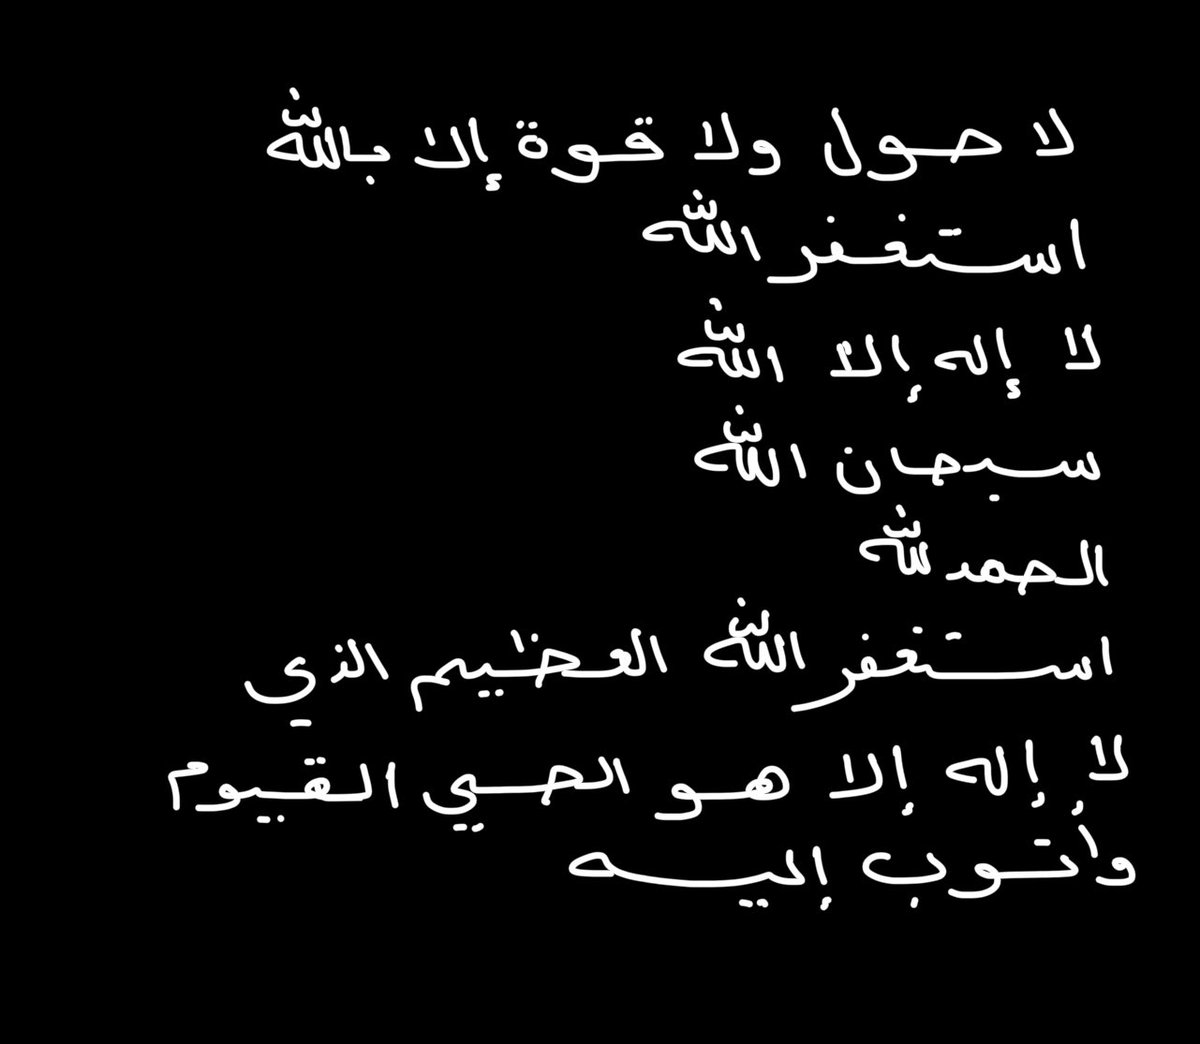 لا حول ولا قوة إلا بالله
استغفر الله
لا إله إلا الله
سبحان الله
الحمدلله
استغفر الله العظيم الذي
لا إله إلا هو الحي القيوم
وأتوب إليه